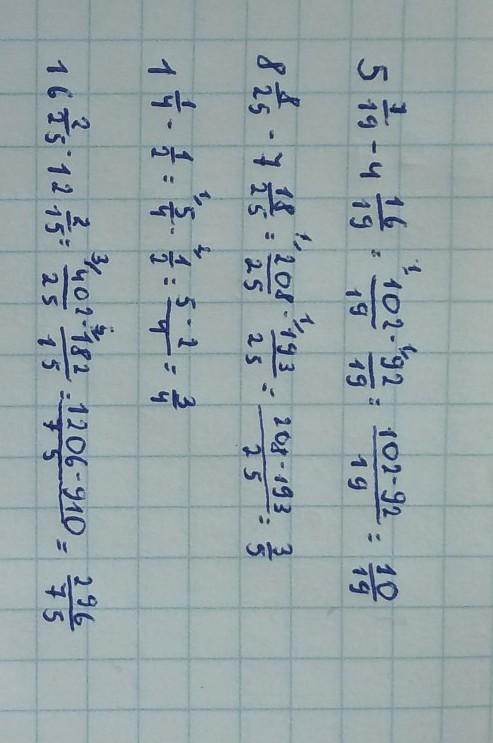 5 7/19 - 4 16/19 = 102/19 - 92/19 = (102-92)/19 = 10/19
8 8/25 - 7 18/25 = 208/25 - 193/25 = (208-193)/25 = 3/5
1 1/4 - 1/2 = 5/4 - 1/2 = (5-2)/4 = 3/4
16 2/25 - 12 2/15 = 402/25 - 182/15 = (1206-910)/75 = 296/75